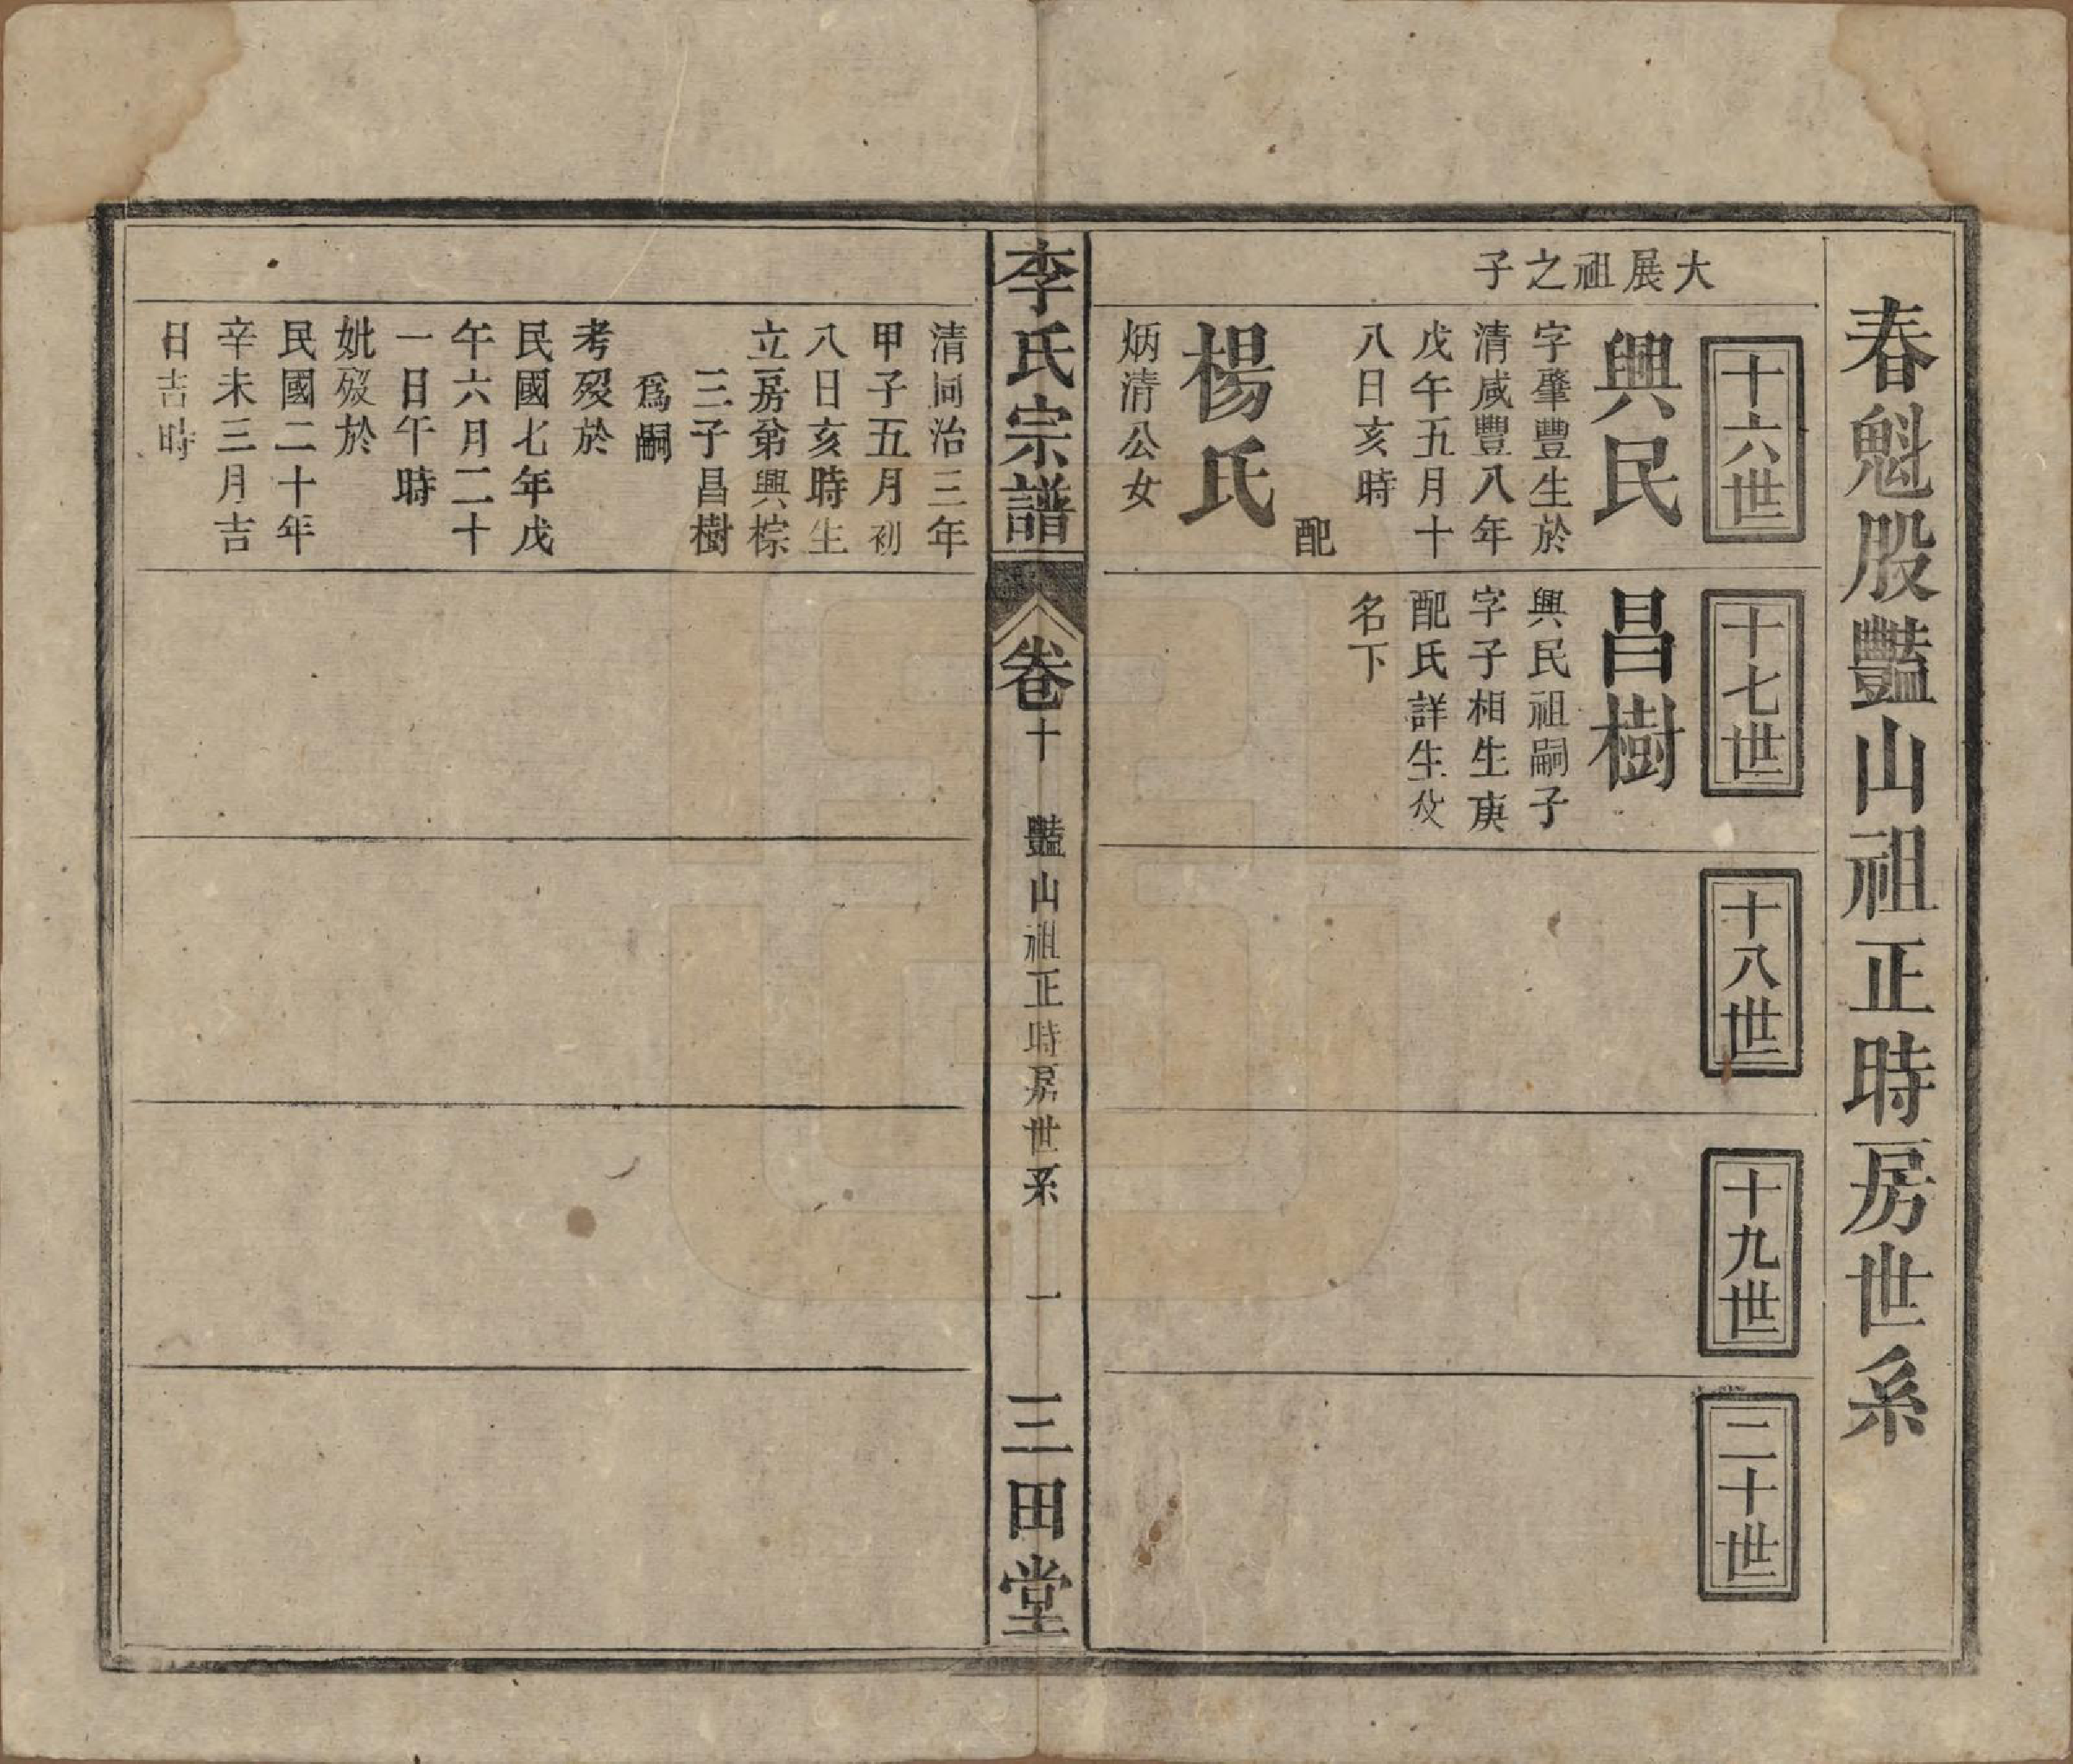 春魁股豔山祖正時房世系
十六世
十七世
十八世
十九世
二十世
大展祖之子
興民
字肇豐生於
清咸豐八年
戊午五月十
八日亥時
配
楊氏
炳清公女
清同治三年
甲子五月初
八日亥時生
立房弟興棕
三子昌樹
爲嗣
考歿於
民國七年戊
午六月二十
一日午時
妣歿於
民國二十年
辛未三月吉
日吉時
昌樹
興民祖嗣子
字子相生庚
配氏詳生父
名下
李氏宗譜
卷十
豔山祖正時房世系
一
三田堂